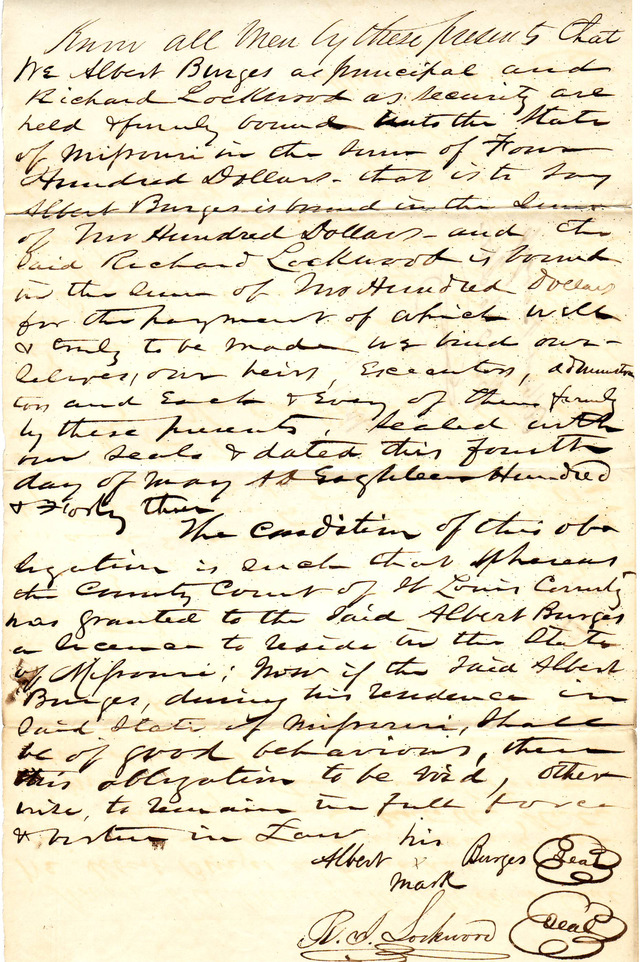 Know all Men by these presents that
We Albert Burges as principal and
Richard Lockwood as security are
held & firmly bound unto the State
of Missouri in the sum of Four
Hundred Dollars - that is to say
Albert Burges is bound in the Sum
of Two Hundred Dollars - and the
Said Richard Lockwood is bound
in the sum of Two Hundred Dollars
for the payment of which well
& truly to be made we bind our-
selves, our heirs, Executors, administra
tors and Each & Every of them firmly
by these presents, Sealed with
our seals & dated this fourth
day of May AD Eighteen Hundred
& Forty three
The Condition of this ob-
ligation is such that Whereas
the County Court of St Louis County
has granted to the Said Albert Burges
a licence to reside in the State
of Missouri; Now if the Said Albert
Burges, during his residence in
Said State of Missouri, Shall
be of good behaviour, then
this obligation to be void, other
wise, to remain in full force
& virtue in Law
his
Albert x Burges Seal
mark
R. A. Lockwood Seal